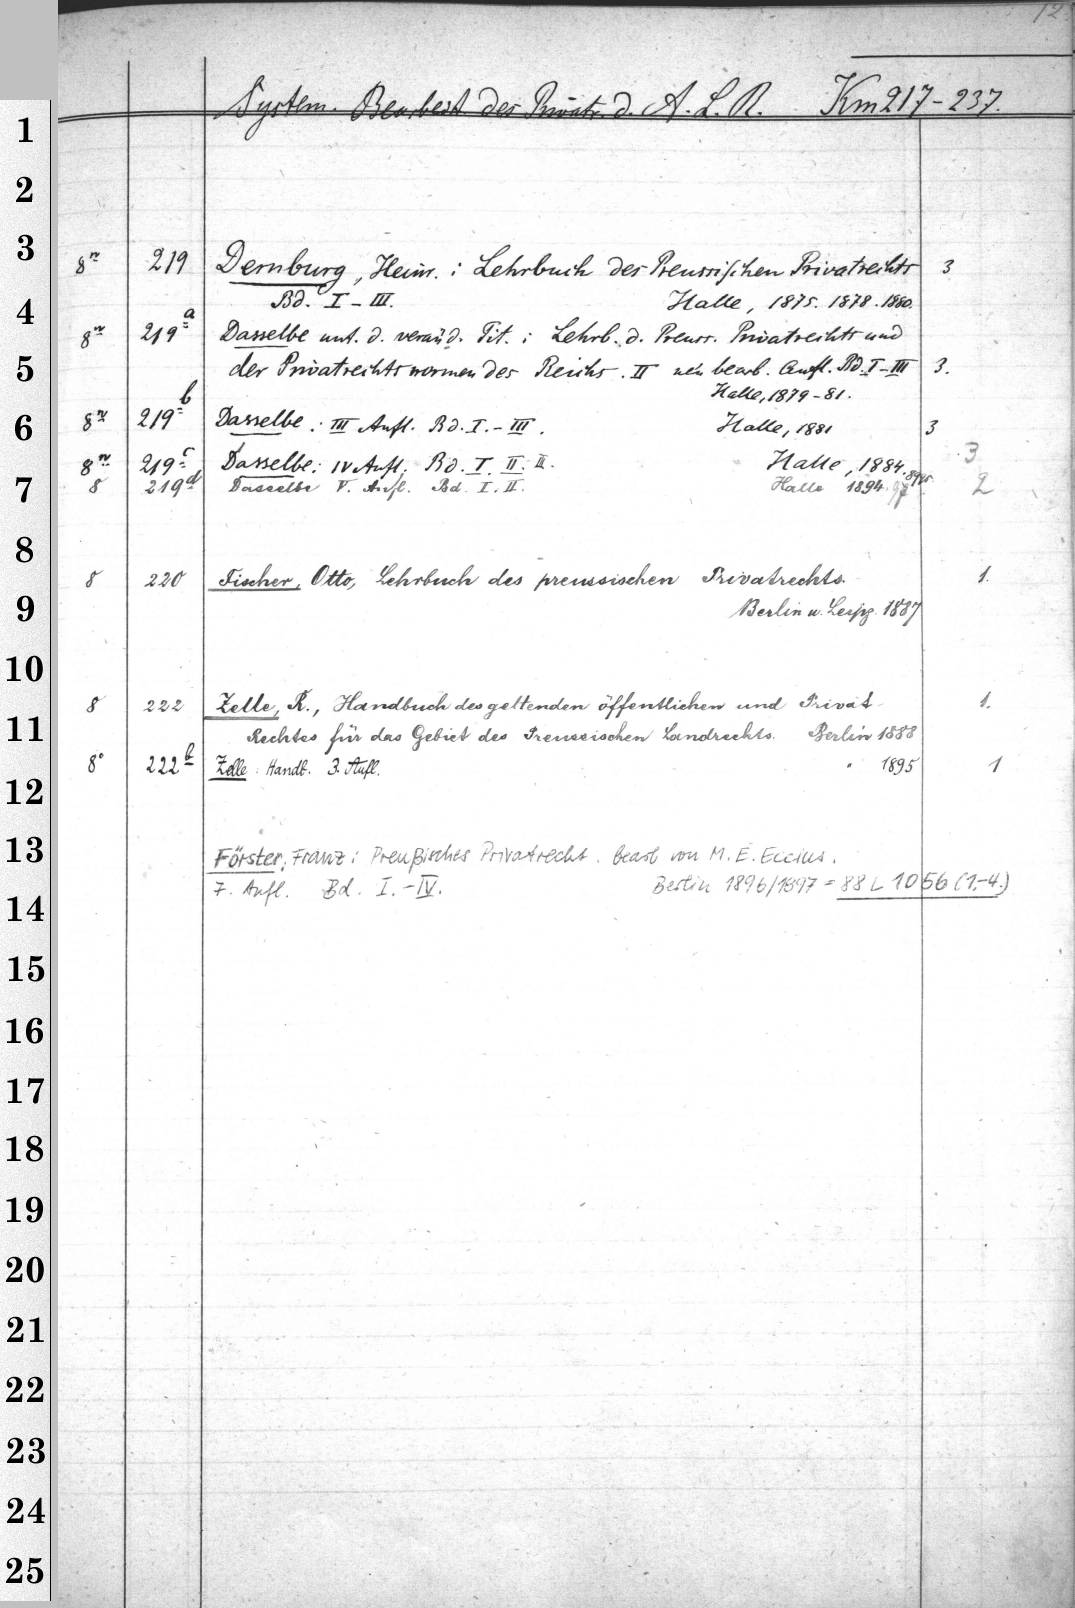 12
System. Bearbeit des Privatr. d. A. L. R. Km 217-237.
8º 219 Dernburg, Heinr. : Lehrbuch des Preussischen Privatrechts 3
Bd. I-III. Halle, 1875. 1878. 1880.
8º 219a Dasselbe unt. d. veränd. Tit. : Lehrb. d. Preuss. Privatrechts und
der Privatrechtsnormen des Reichs. II neu bearb. Aufl. Bd. I-III 3.
Halle, 1879-81.
8º 219b Dasselbe : III Aufl. Bd. I.-III. Halle, 1881 3
8º 219c Dasselbe: IV Aufl. Bd. I. II. III. Halle, 1884. 3
8 219d Dasselbe V. Aufl. Bd. I. II. Halle 1894. 2
8 220 Fischer, Otto, Lehrbuch des preussischen Privatrechts. 1.
Berlin u. Leipz. 1887
8 222 Zelle, R., Handbuch des geltenden öffentlichen und Privat- 1.
Rechtes für das Gebiet des Preussischen Landrechts. Berlin 1888
8º 222b Zelle : Handb. 3. Aufl. " 1895 1
Förster, Franz: Preußisches Privatrecht. bearb von M. E. Eccius.
7. Aufl. Bd. I.-IV. Berlin 1896/1897 = 88 L 1056 (1.-4.)
1
2
3
4
5
6
7
8
9
10
11
12
13
14
15
16
17
18
19
20
21
22
23
24
25